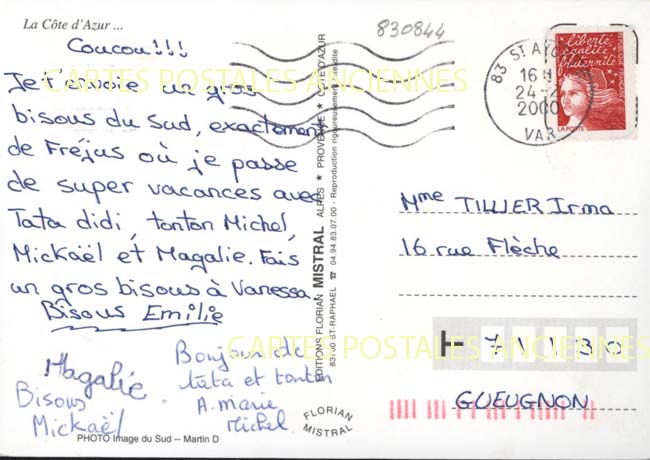 La Côte d'Azur ...
830844
Coucou!!!
Je t'envoie un gros
bisous du Sud, exactement
de Fréjus où je passe
de super vacances avec
Tata didi, tonton Michel,
Mickaël et Magalie. Fais
un gros bisous à Vanessa
Bisous Emilie
Magalie
Bisous
Mickaël
Bonjour de
tata et tonton
A. marie
Michel
PHOTO Image du Sud -- Martin D
EDITIONS FLORIAN MISTRAL ALPES ★ PROVENCE ★ CÔTE D'AZUR
83700 ST-RAPHAEL ☎ 04.94.83.07.00 - Reproduction rigoureusement interdite
FLORIAN
MISTRAL
83 ST AYG
16 H
24-2
2000
VAR
liberté
égalité
fraternité
LA POSTE
Mme TILLIER Irma
16 rue Flèche
71130
GUEUGNON
CARTES POSTALES ANCIENNES
CARTES POSTALES ANCIENNES